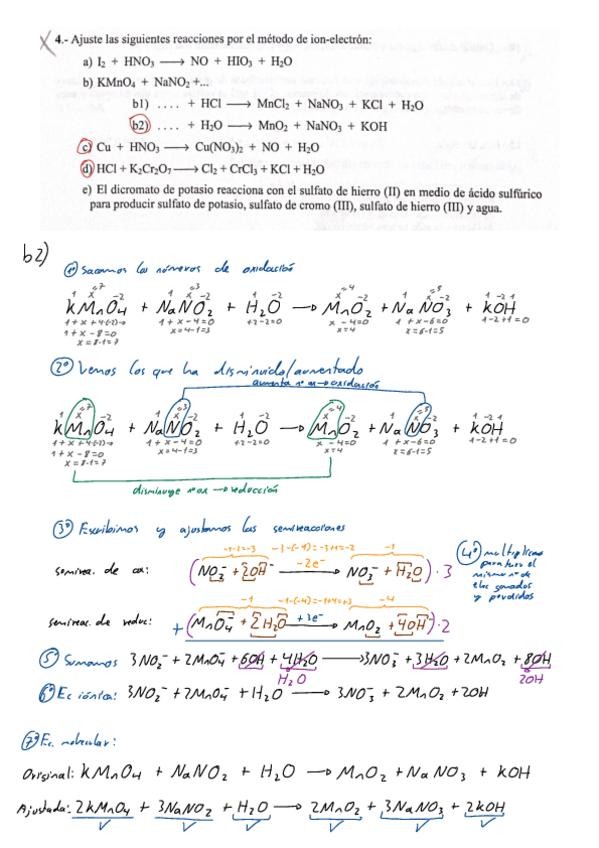 4.- Ajuste las siguientes reacciones por el método de ion-electrón:
a) I₂ + HNO₃ ⟶ NO + HIO₃ + H₂O
b) KMnO₄ + NaNO₂ +...
b1) .... + HCl ⟶ MnCl₂ + NaNO₃ + KCl + H₂O
b2) .... + H₂O ⟶ MnO₂ + NaNO₃ + KOH
c) Cu + HNO₃ ⟶ Cu(NO₃)₂ + NO + H₂O
d) HCl + K₂Cr₂O₇ ⟶ Cl₂ + CrCl₃ + KCl + H₂O
e) El dicromato de potasio reacciona con el sulfato de hierro (II) en medio de ácido sulfúrico
para producir sulfato de potasio, sulfato de cromo (III), sulfato de hierro (III) y agua.
b2)
1º Sacamos los números de oxidación
1 x=7 -2 1 x=3 -2 1 -2 x=4 -2 1 x=5 -2 1 -2 1
kMnO₄ + NaNO₂ + H₂O ⟶ MnO₂ + NaNO₃ + kOH
1+x-4=0 +2-2=0 x-4=0 1+x-6=0 1-2+1=0
1+x-8=0 x=4-1=3 x=4 x=6-1=5
x=8-1=7
2º Vemos los que ha disminuido/aumentado
aumenta nº ox ⟶ oxidación
1 x=7 -2 1 x=3 -2 1 -2 x=4 -2 1 x=5 -2 1 -2 1
kMnO₄ + NaNO₂ + H₂O ⟶ MnO₂ + NaNO₃ + kOH
1+x-4=0 +2-2=0 x-4=0 1+x-6=0 1-2+1=0
1+x-8=0 x=4-1=3 x=4 x=6-1=5
x=8-1=7
disminuye nº ox ⟶ reducción
3º Escribimos y ajustamos las semireacciones
-1-2=-3 -1-(-4)=-3+1=-2 -1
semirea. de ox: (NO₂⁻ + 2OH⁻ -2e⁻⟶ NO₃⁻ + H₂O) · 3
4º multiplicas
para tener el
mismo nº de
elec ganados
y perdidos
-1 -1-(-4)=-1+4=+3 -4
semireac. de reduc: + (MnO₄⁻ + 2H₂O +3e⁻⟶ MnO₂ + 4OH⁻) · 2
5º Sumamos 3NO₂⁻ + 2MnO₄⁻ + 6OH + 4H₂O ⟶ 3NO₃⁻ + 3H₂O + 2MnO₂ + 8OH
H₂O 2OH
6º Ec iónica: 3NO₂⁻ + 2MnO₄⁻ + H₂O ⟶ 3NO₃⁻ + 2MnO₂ + 2OH
7º Ec. molecular:
Original: kMnO₄ + NaNO₂ + H₂O ⟶ MnO₂ + NaNO₃ + kOH
Ajustada: 2kMnO₄ + 3NaNO₂ + H₂O ⟶ 2MnO₂ + 3NaNO₃ + 2kOH